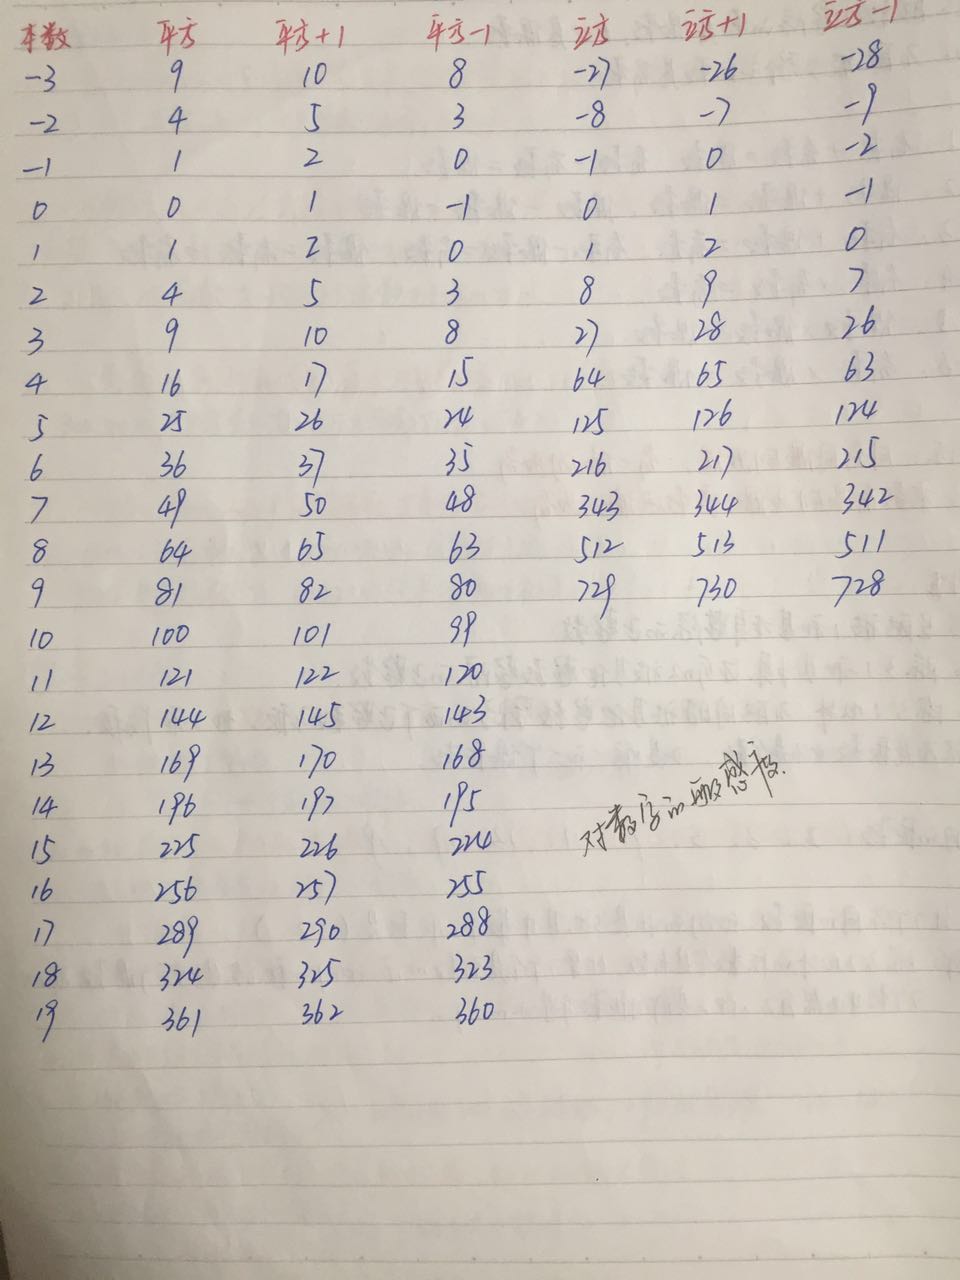 本数 平方 平方+1 平方-1 立方 立方+1 立方-1
-3 9 10 8 -27 -26 -28
-2 4 5 3 -8 -7 -9
-1 1 2 0 -1 0 -2
0 0 1 -1 0 1 -1
1 1 2 0 1 2 0
2 4 5 3 8 9 7
3 9 10 8 27 28 26
4 16 17 15 64 65 63
5 25 26 24 125 126 124
6 36 37 35 216 217 215
7 49 50 48 343 344 342
8 64 65 63 512 513 511
9 81 82 80 729 730 728
10 100 101 99
11 121 122 120
12 144 145 143
13 169 170 168
14 196 197 195
对数字的敏感度.
15 225 226 224
16 256 257 255
17 289 290 288
18 324 325 323
19 361 362 360